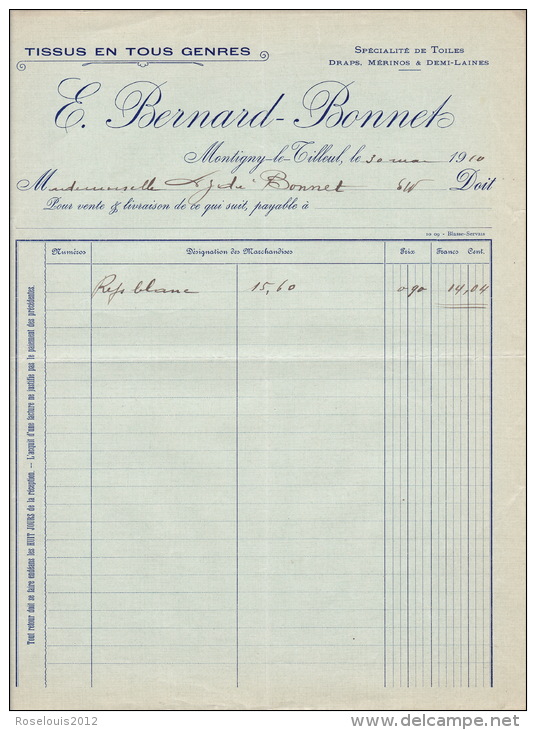 TISSUS EN TOUS GENRES
SPÉCIALITÉ DE TOILES
DRAPS, MÉRINOS & DEMI-LAINES
E. Bernard-Bonnet
Montigny-le-Tilleul, le 30 mai 1910
Mademoiselle Bonnet Doit
Pour vente & livraison de ce qui suit, payable à
10 09 - Blasse-Servais
Numéros Désignation des Marchandises Prix Francs Cent.
Reps blanc 15,60 0 90 14,04
Tout retour doit se faire endéans les HUIT JOURS de la réception. — L'acquit d'une facture ne justifie pas le paiement des précédentes.
Roselouis2012
delcampe.net